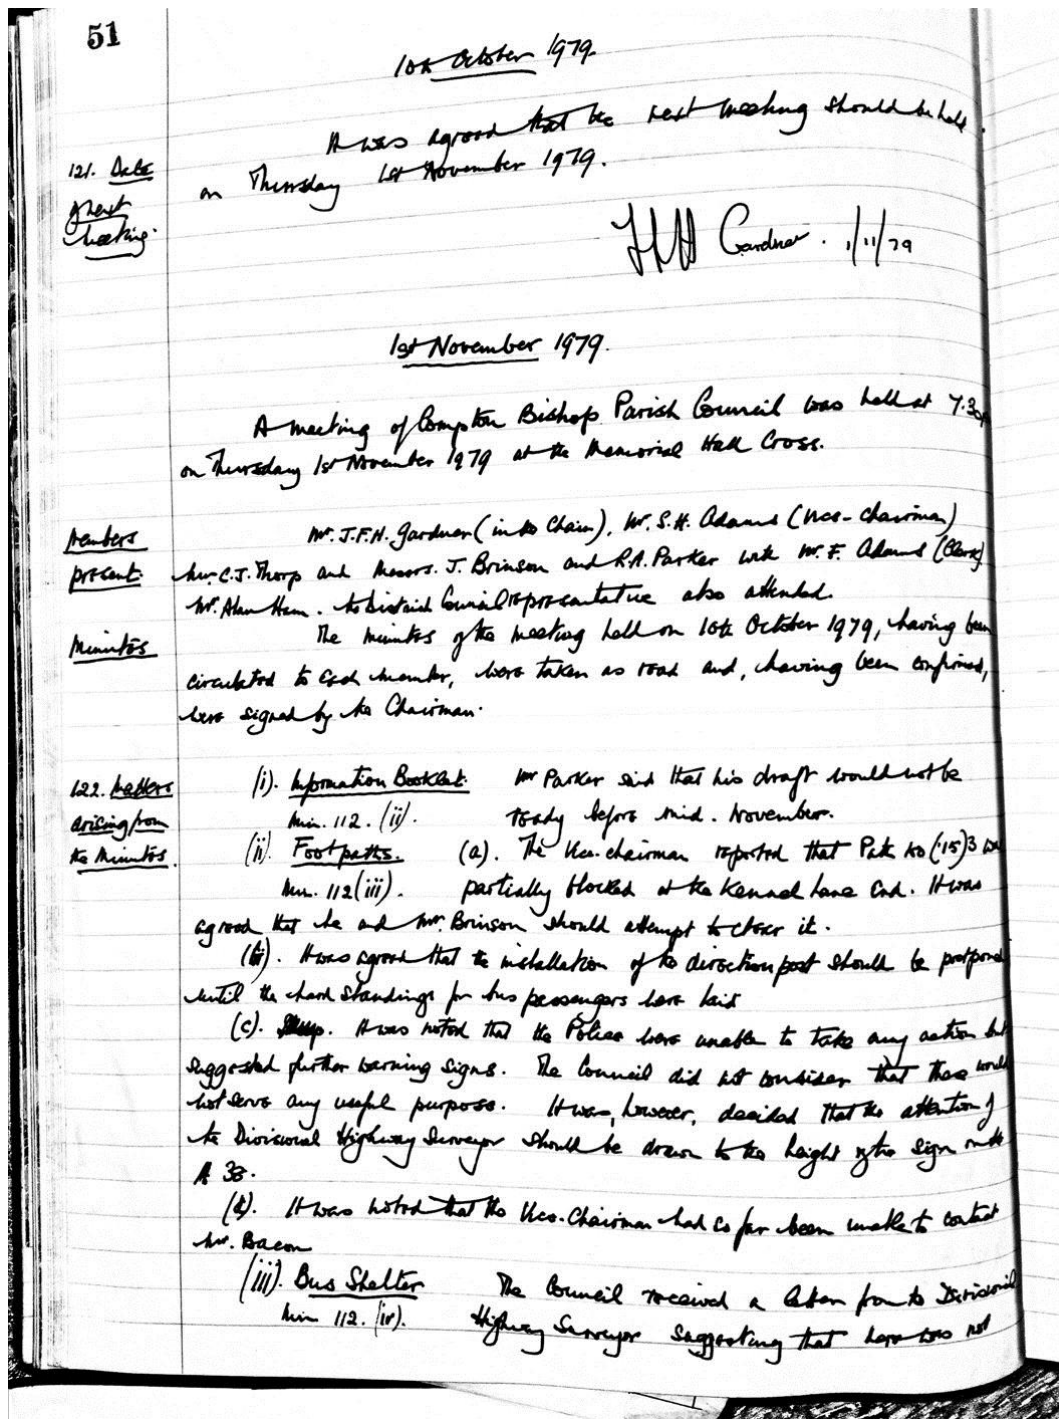 51
10th October 1979.
It was agreed that the next meeting should be held
121. Date
of next
meeting.
on Thursday 1st November 1979.
Gardner. 1/11/79
1st November 1979.
A meeting of Compton Bishop Parish Council was held at 7.30p
on Thursday 1st November 1979 at the Memorial Hall Cross.
Members
present.
Mr. J.F.H. Gardner (in the Chair), Mr. S.H. Adams (Vice-Chairman)
Mr. C.J. Thorp and Messrs. J. Brinson and R.A. Parker with Mr. F. Adams (Clerk)
Mr. Alan Ham. the District Council representative also attended.
Minutes
The minutes of the meeting held on 10th October 1979, having been
circulated to each member, were taken as read and, having been confirmed,
were signed by the Chairman.
122. Matters
arising from
the Minutes.
(i). Information Booklet. Mr Parker said that his draft would not be
Min. 112. (ii). ready before mid. November.
(ii). Footpaths. (a). The Vice-chairman reported that Path No (15)3 was
Min. 112 (iii). partially blocked at the Kennel Lane End. It was
agreed that he and Mr. Brinson should attempt to clear it.
(b). It was agreed that the installation of the direction post should be postponed
until the hard standings for bus passengers were laid
(c). It was noted that the Police were unable to take any action but
suggested further warning signs. The Council did not consider that these would
not serve any useful purpose. It was, however, decided that the attention of
the Divisional Highway Surveyor should be drawn to the height of the sign on the
A 38.
(d). It was noted that the Vice-Chairman had so far been unable to contact
Mr. Bacon
(iii). Bus Shelter The Council received a letter from the Divisional
Min 112. (iv). Highway Surveyor suggesting that here was not